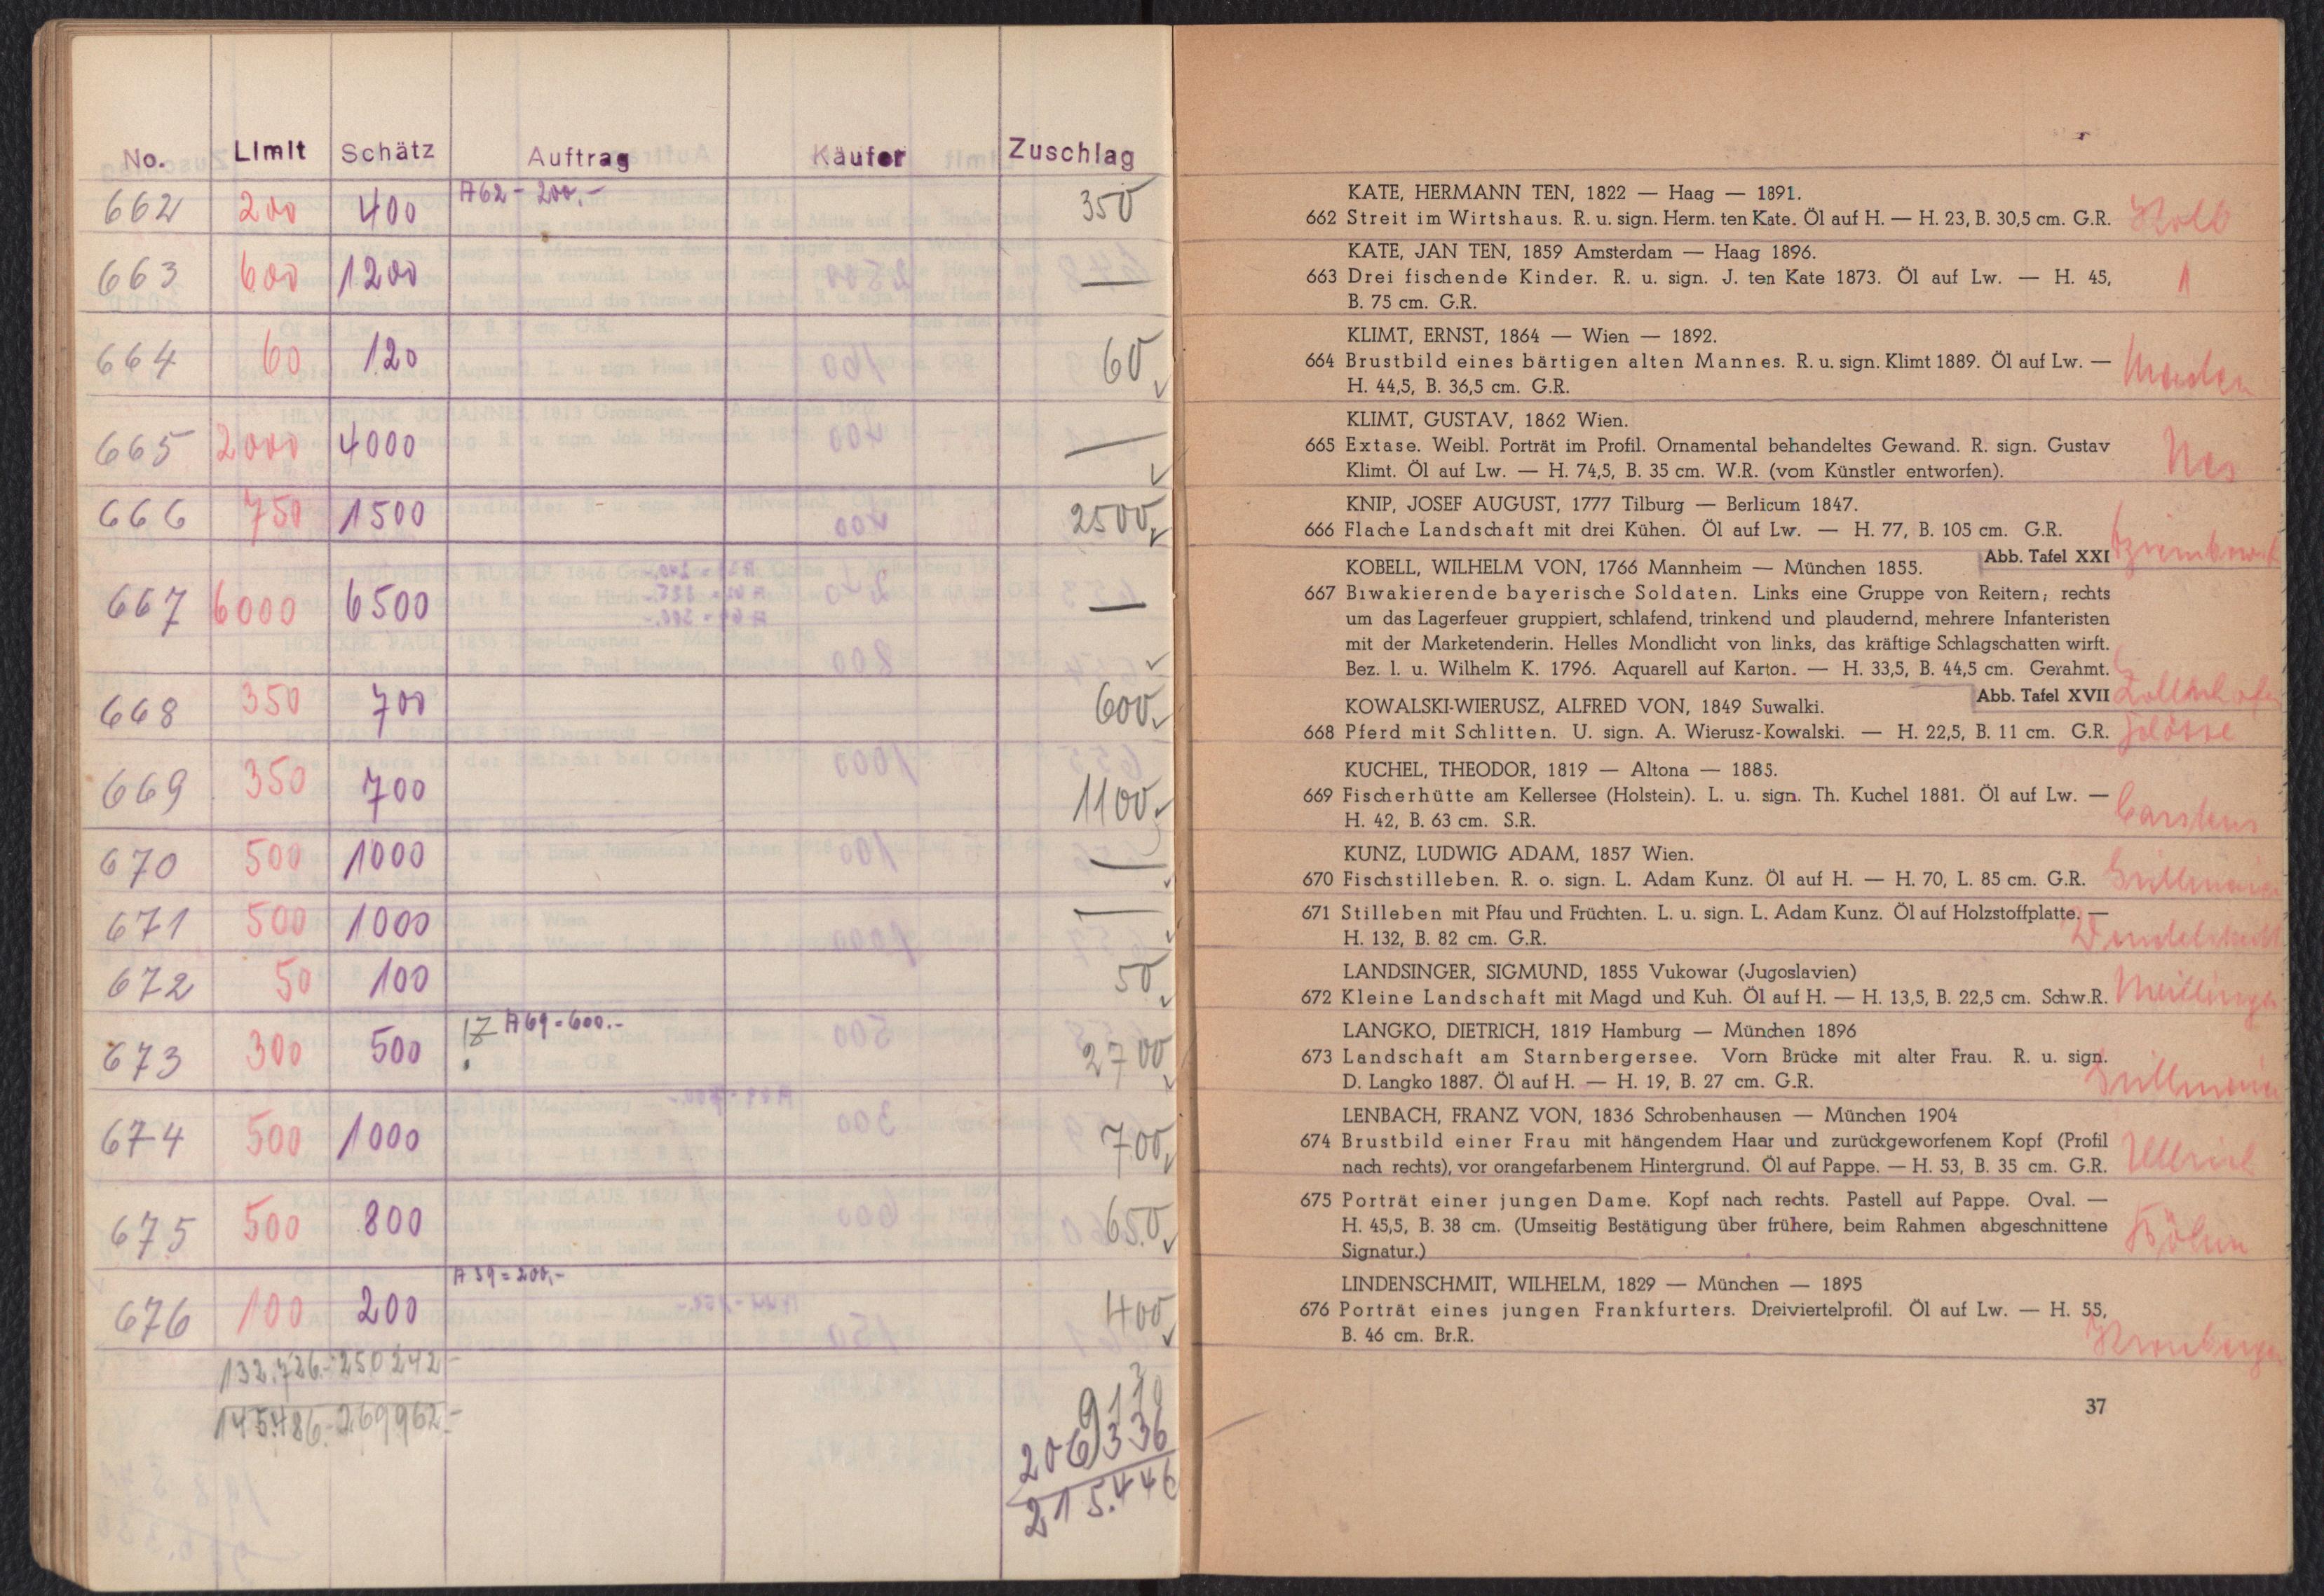 No. Limit Schätz Auftrag Käufer Zuschlag
662 200 400 A62 - 200.- 350
663 600 1200 —
664 60 120 60
665 2000 4000 —
666 750 1500 2500
667 6000 6500 —
668 350 700 600
669 350 700 1100
670 500 1000 —
671 500 1000 —
672 50 100 50
673 300 500 A69 = 600.- 2700
674 500 1000 700
675 500 800 650
676 100 200 A39 = 200,- 400
132.726.- 250242.-
145.486.- 269962.-
206336
215.446
KATE, HERMANN TEN, 1822 — Haag — 1891.
662 Streit im Wirtshaus. R. u. sign. Herm. ten Kate. Öl auf H. — H. 23, B. 30,5 cm. G.R.
KATE, JAN TEN, 1859 Amsterdam — Haag 1896.
663 Drei fischende Kinder. R. u. sign. J. ten Kate 1873. Öl auf Lw. — H. 45,
B. 75 cm. G.R.
KLIMT, ERNST, 1864 — Wien — 1892.
664 Brustbild eines bärtigen alten Mannes. R. u. sign. Klimt 1889. Öl auf Lw. —
H. 44,5, B. 36,5 cm. G.R.
KLIMT, GUSTAV, 1862 Wien.
665 Extase. Weibl. Porträt im Profil. Ornamental behandeltes Gewand. R. sign. Gustav
Klimt. Öl auf Lw. — H. 74,5, B. 35 cm. W.R. (vom Künstler entworfen).
KNIP, JOSEF AUGUST, 1777 Tilburg — Berlicum 1847.
666 Flache Landschaft mit drei Kühen. Öl auf Lw. — H. 77, B. 105 cm. G.R.
Abb. Tafel XXI
KOBELL, WILHELM VON, 1766 Mannheim — München 1855.
667 Biwakierende bayerische Soldaten. Links eine Gruppe von Reitern; rechts
um das Lagerfeuer gruppiert, schlafend, trinkend und plaudernd, mehrere Infanteristen
mit der Marketenderin. Helles Mondlicht von links, das kräftige Schlagschatten wirft.
Bez. l. u. Wilhelm K. 1796. Aquarell auf Karton. — H. 33,5, B. 44,5 cm. Gerahmt.
Abb. Tafel XVII
KOWALSKI-WIERUSZ, ALFRED VON, 1849 Suwalki.
668 Pferd mit Schlitten. U. sign. A. Wierusz-Kowalski. — H. 22,5, B. 11 cm. G.R.
KUCHEL, THEODOR, 1819 — Altona — 1885.
669 Fischerhütte am Kellersee (Holstein). L. u. sign. Th. Kuchel 1881. Öl auf Lw. — Carstens
H. 42, B. 63 cm. S.R.
KUNZ, LUDWIG ADAM, 1857 Wien.
670 Fischstilleben. R. o. sign. L. Adam Kunz. Öl auf H. — H. 70, L. 85 cm. G.R.
671 Stilleben mit Pfau und Früchten. L. u. sign. L. Adam Kunz. Öl auf Holzstoffplatte. —
H. 132, B. 82 cm. G.R.
LANDSINGER, SIGMUND, 1855 Vukowar (Jugoslavien)
672 Kleine Landschaft mit Magd und Kuh. Öl auf H. — H. 13,5, B. 22,5 cm. Schw.R.
LANGKO, DIETRICH, 1819 Hamburg — München 1896
673 Landschaft am Starnbergersee. Vorn Brücke mit alter Frau. R. u. sign.
D. Langko 1887. Öl auf H. — H. 19, B. 27 cm. G.R.
LENBACH, FRANZ VON, 1836 Schrobenhausen — München 1904
674 Brustbild einer Frau mit hängendem Haar und zurückgeworfenem Kopf (Profil
nach rechts), vor orangefarbenem Hintergrund. Öl auf Pappe. — H. 53, B. 35 cm. G.R. Ullrich
675 Porträt einer jungen Dame. Kopf nach rechts. Pastell auf Pappe. Oval. —
H. 45,5, B. 38 cm. (Umseitig Bestätigung über frühere, beim Rahmen abgeschnittene
Signatur.)
LINDENSCHMIT, WILHELM, 1829 — München — 1895
676 Porträt eines jungen Frankfurters. Dreiviertelprofil. Öl auf Lw. — H. 55,
B. 46 cm. Br.R.
37